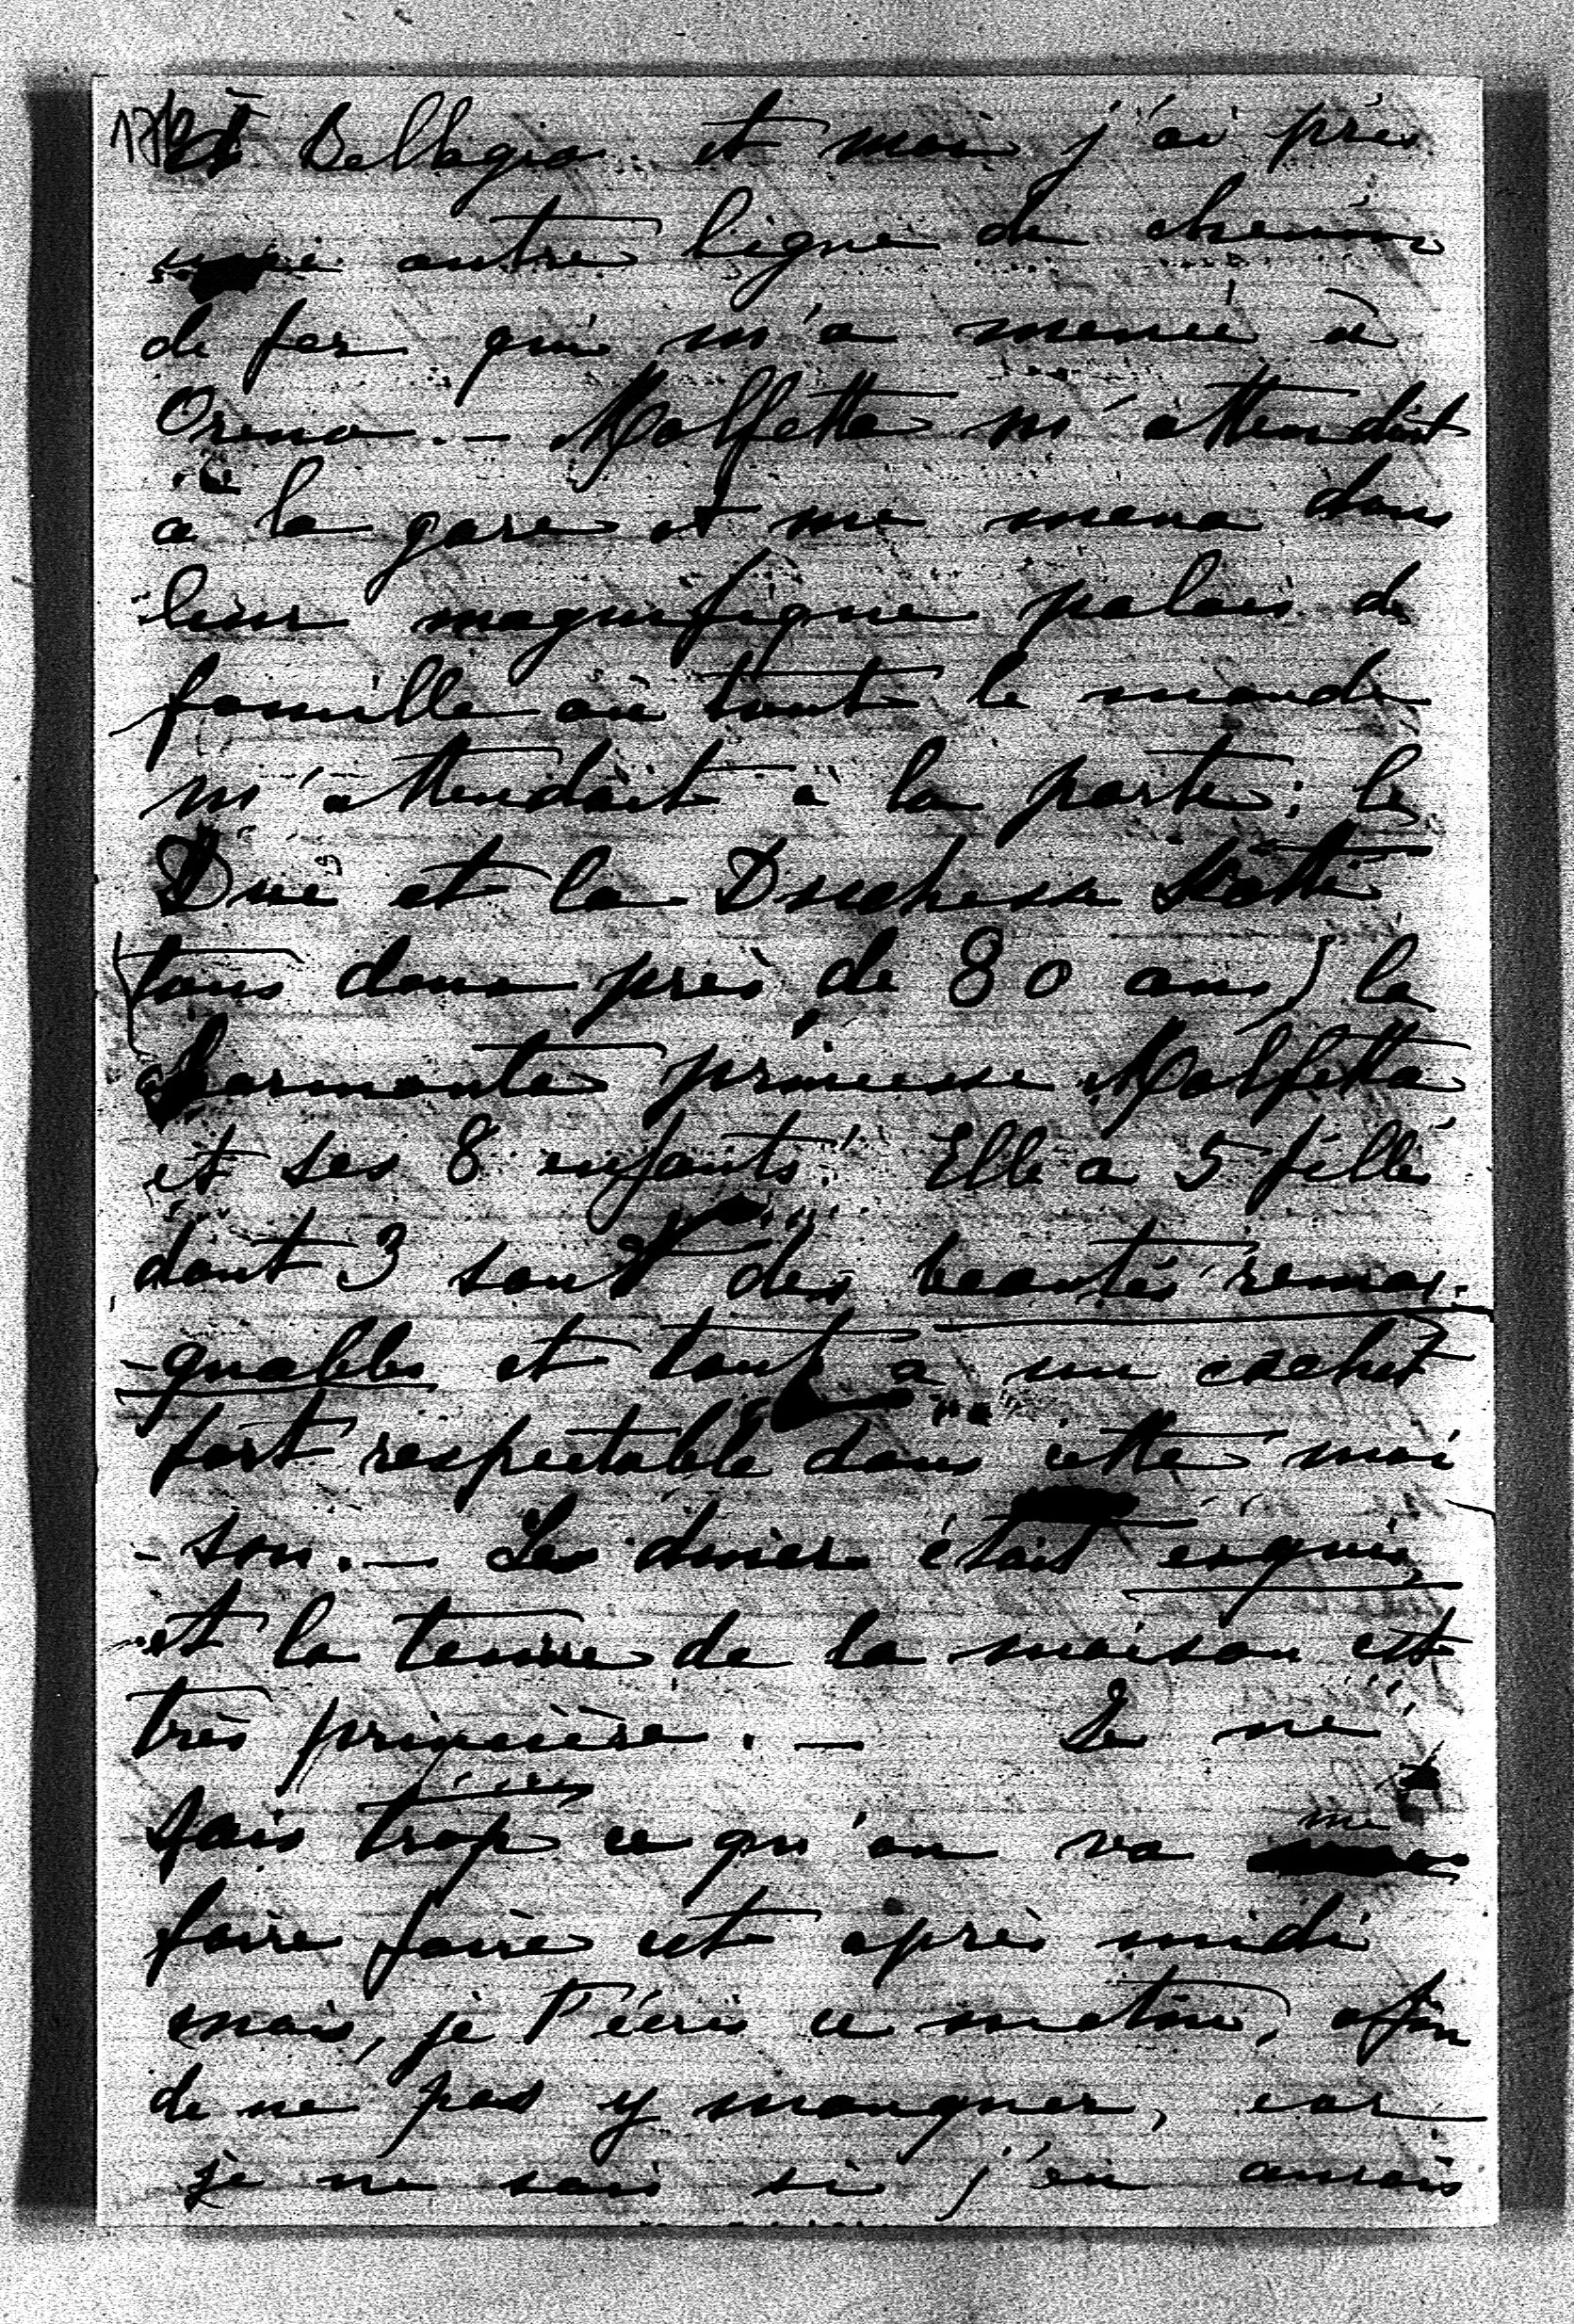 Bellagio et moi j'ai pris
une autre ligne de chemin
de fer qui m'a menée à
Oreno. — Molfetta m'attendait
a la gare et me mena dans
leur magnifique palais de
famille où tout le monde
m'attendait à la porte; le
Duc et la Duchesse
tous deux près de 80 ans) la
charmante princesse Molfetta
et ses 8 enfants! Elle a 5 filles
dont 3 sont des beautés remar-
-quables et tout a un cachet
fort respectable dans cette mai
-son. — Le diner était exquis
et la tenue de la maison est
très princière. — Je ne
sais trop ce qu'on va me
faire faire cet après midi
mais, je t'écris ce matin, afin
de ne pas y manquer, car
je ne sais si j'en aurais